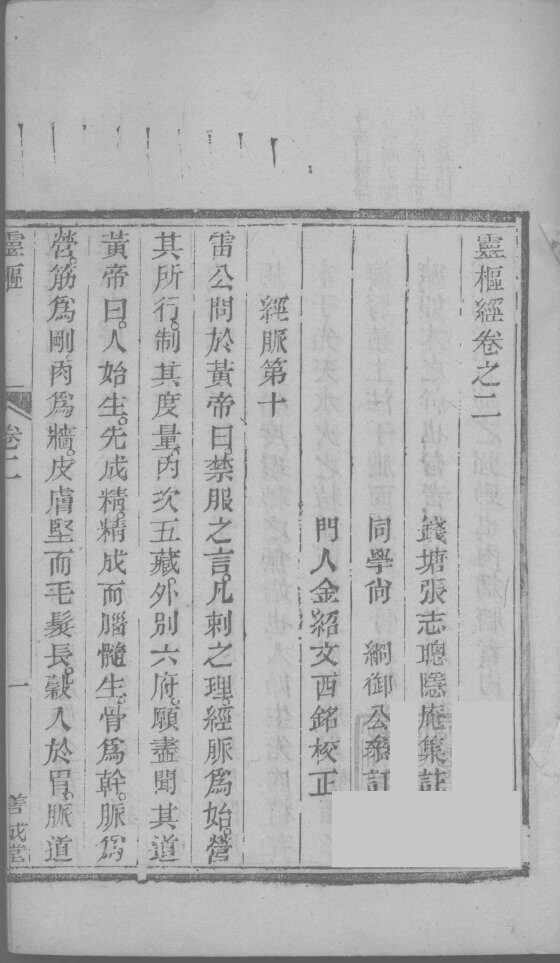 靈樞經卷之二
錢塘張志聰隱庵集註
同學尙 綱御公叅訂
門人金紹文西銘校正
經脈第十
雷公問於黃帝曰。禁服之言。凡刺之理。經脈爲始。營
其所行。制其度量。內次五藏。外別六府。願盡聞其道
黃帝曰。人始生。先成精。精成而腦髓生。骨爲幹。脈爲
營。筋爲剛。肉爲牆。皮膚堅而毛髮長。穀入於胃。脈道
靈樞 卷二 一 善成堂